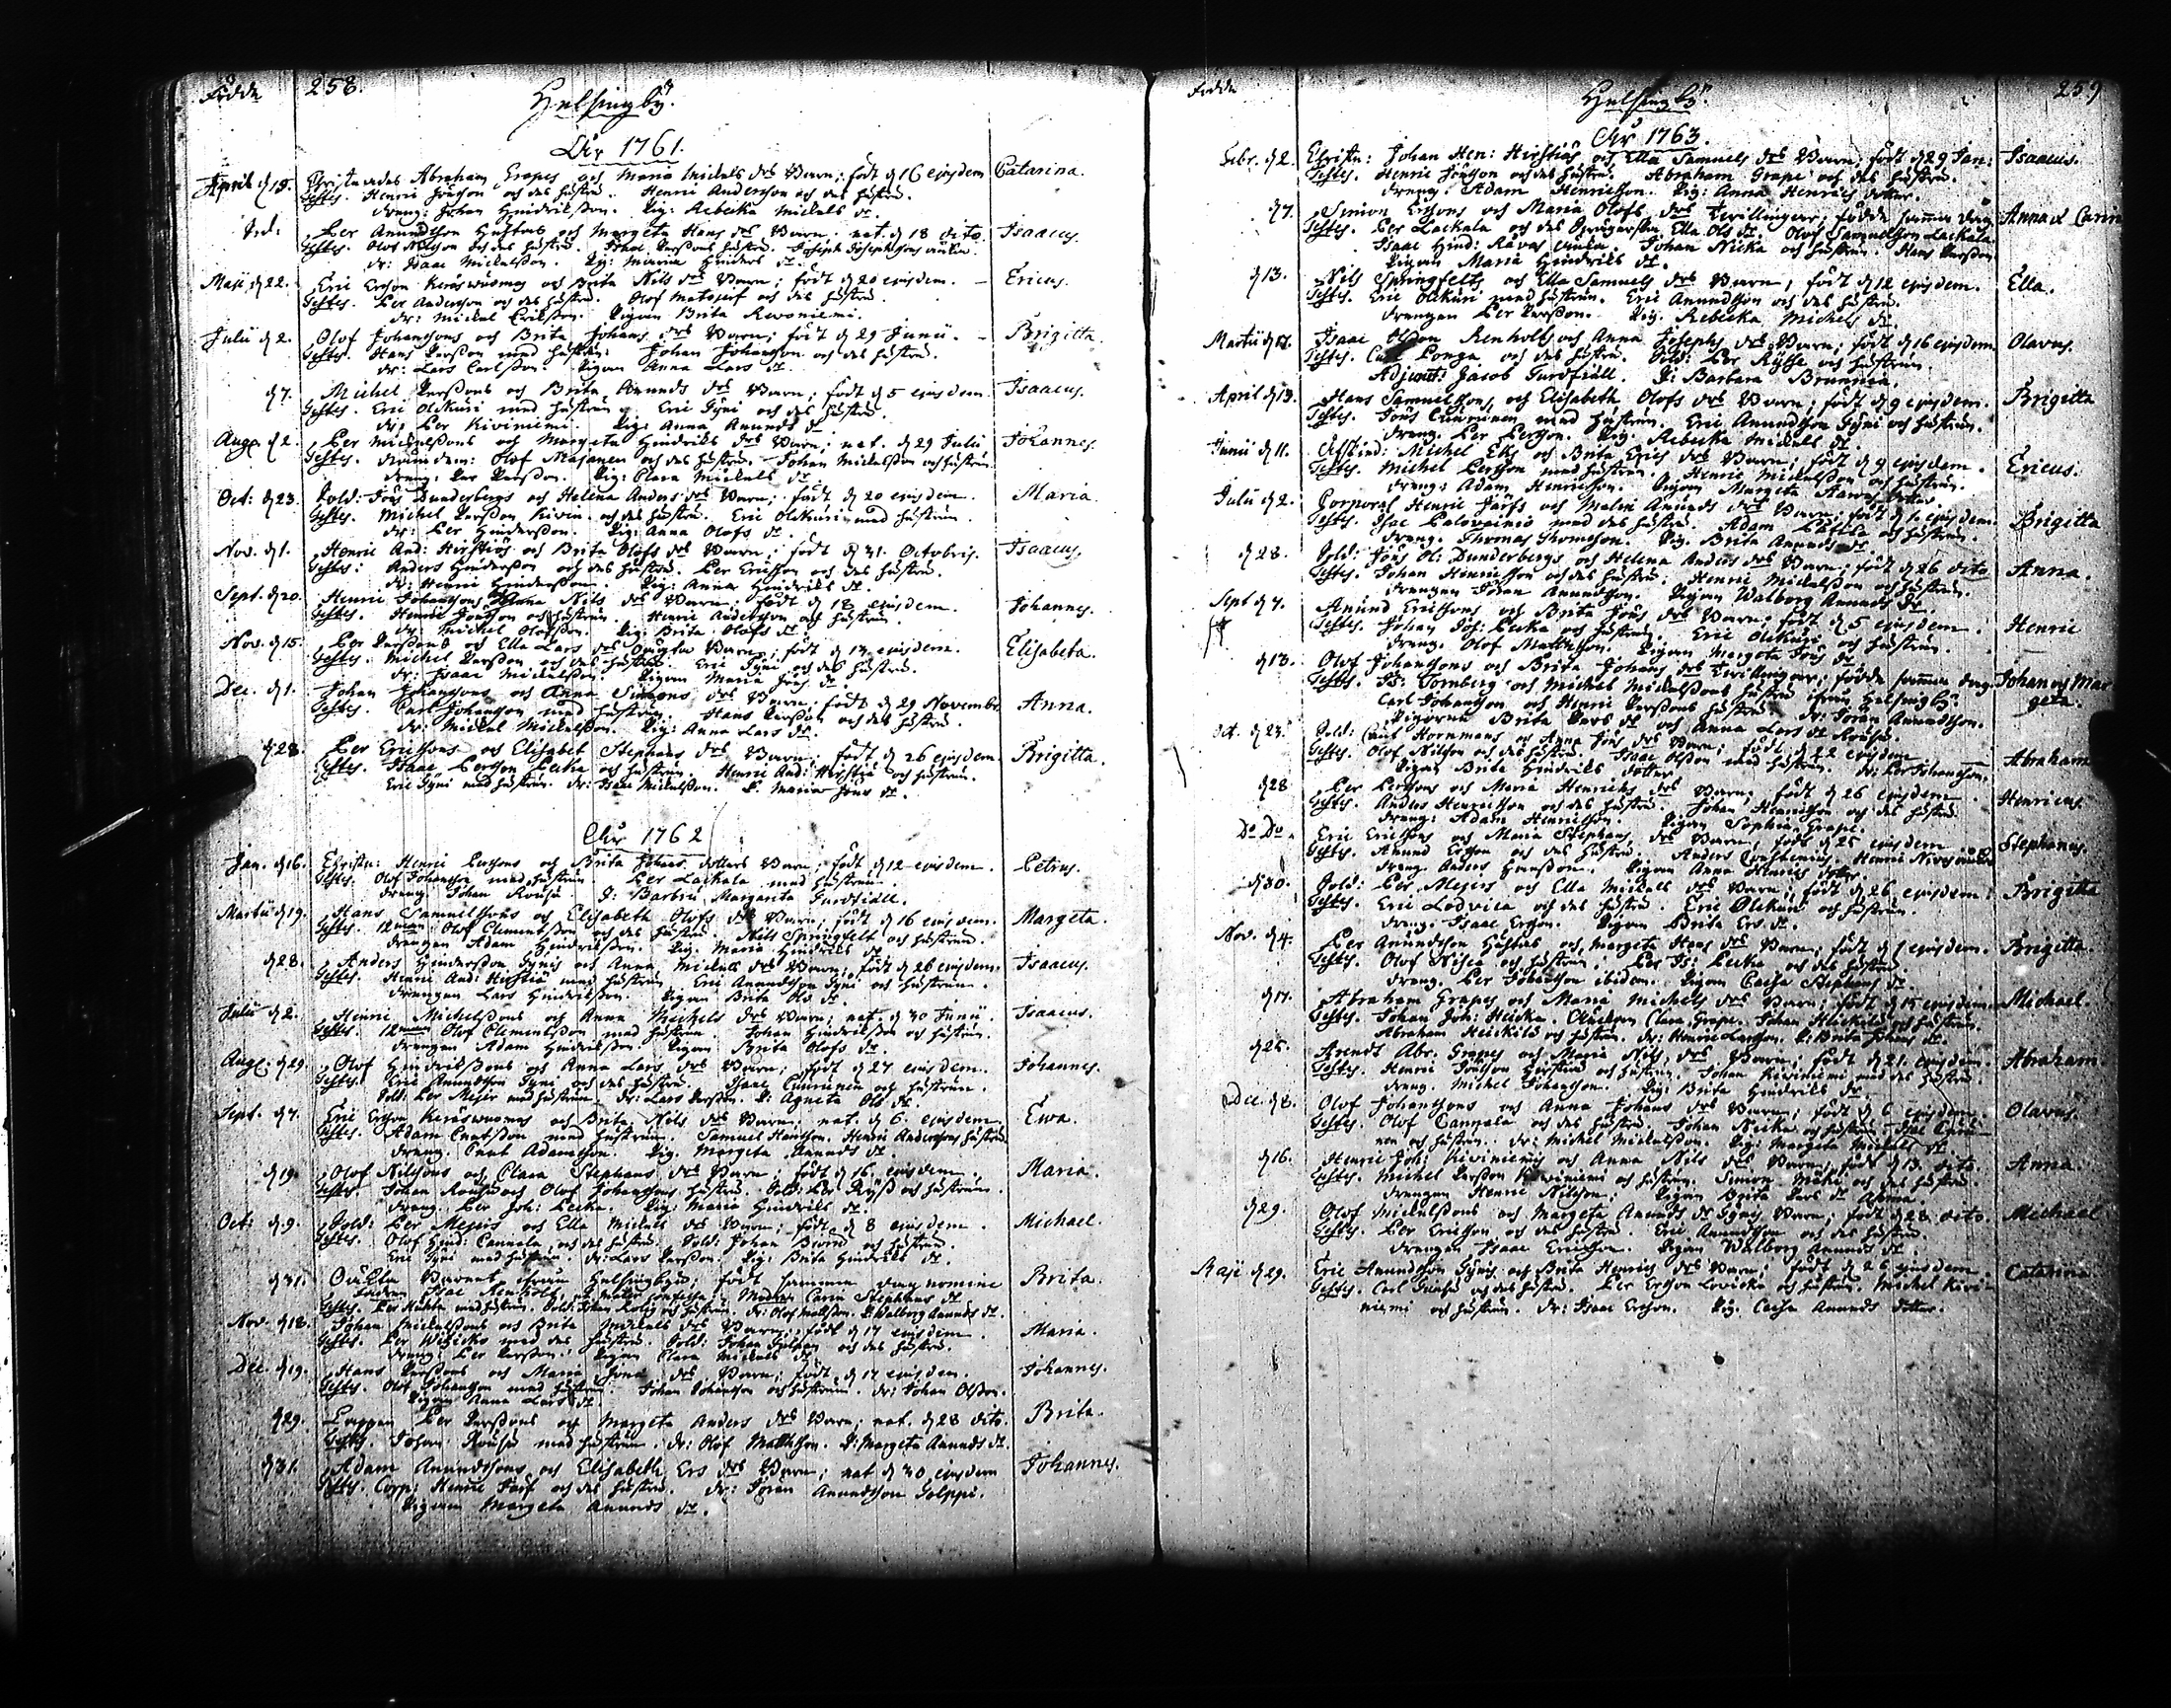 Födde
258.
Helsingby.
År 1761.
April d 19. Christnades Abraham Grapes och Maria Mickels drs Barn; födt d 16 ejusdem Catarina.
Testes. Henric Jönsson och des hustru. Henric Andersson och des hustru.
dreng: Johan Hindriksson. Pig: Rebecka Mickels dr.
Per Anundsson Hustas och Margeta Hans drs Barn. nat. d 18 dito. Isaacus.
Testes. Olof Nilsson och des hustru. Isaac Perssons hustru. Joseph Josephssons
dr: Isaac Mickelsson. Pig: Maria Hinders dr.
Maji d 22. Eric Ersson Keräswuomas och Brita Nils drs Barn; födt d 20 ejusdem. Ericus.
Testes. Per Andersson och des hustru. Olof och des hustru.
dr: Mickel Eriksson. Pigan Brita Rewoniemi.
Julii d 2. Olof Johanssons och Brita Johans drs Barn; födt d 29 Junii. Brigitta.
Testes. Hans Persson med hustru. Johan Johansson och des hustru.
dr: Lars Carlsson. Pigan Anna Lars dr.
d 7. Michel Perssons och Brita Anunds drs Barn; födt d 5 ejusdem. Isaacus.
Testes. Eric Olckuri med hustru. Eric Fyni och des hustru.
dr: Per Kiviniemi. Pig: Anna Anunds dr
Aug. d 2. Per Mickelssons och Margeta Hindriks drs Barn; nat. d 29 Julii Johannes.
Testes. Olof Majanen och des hustru. Johan Mickelsson och hustru.
dreng: Per Persson. Pig: Clara Mickels dr
Oct: d 23. Sold: Jöns Dunderbergs och Helena Anders drs Barn; födt d 20 ejusdem. Maria.
Testes. Michel Persson Kivin. och des hustru. Eric Olckuri med hustrun.
dr: Per Hindersson. Pig: Anna Olofs dr.
Nov. d 1. Henric And: Hirstiös och Brita Olofs drs Barn; födt d 31. Octobris. Isaacus.
Testes: Anders Hindersson och des hustru. Per Ericsson och des hustru.
dr: Henric Hindersson. Pig: Anna Hindriks dr.
Sept. d 20. Henric Johanssons Anna Nils drs Barn; födt d 18 ejusdem. Johannes.
Testes. Henric Jönsson och hustrun. Henric Andersson och hustrun.
dr: Michel Olofsson. Pig: Brita Olofs dr.
Nov. d 15. Per Perssons och Ella Lars drs Barn; födt d 14 ejusdem. Elisabeta.
Testes. Michel Persson och des hustru. Eric Fyni och des hustru.
dr: Isaac Mickelsson. Pigan Maria Jöns dr.
Dec. d 1. Johan Johanssons och Anna Simons drs Barn; födt d 29 Novembr. Anna.
Testes. Carl Johansson med hustrun. Hans Persson och des hustru.
dr: Mickel Mickelsson. Pig: Anna Lars dr.
d 28. Per Ericssons och Elisabet Stephans drs Barn, födt d 26 ejusdem. Brigitta.
Testes. Isaac Persson Lecka och hustrun. Henric And: Hirstiö och hustrun.
Eric Fyni med hustrun. dr: Isaac Mickelsson. P. Maria Jöns dr.
År 1762
Jan. d 16. Christn: Henric Perssons och Brita Johans dotters Barn; födt d 12 ejusdem. Petrus.
Testes. Olof Johansson med hustrun. Per Lackala med hustrun.
dreng Johan Rousu. J: Barbru Margareta Turdfiäll.
Martii d 19. Hans Samuelssons och Elisabeth Olofs drs Barn; födt d 16 ejusdem. Margeta.
Testes. 12 man Olof Clementsson och des hustru. Nils Springfelt och hustrun.
drengen Adam Hindriksson. Pig: Maria Hindriks dr
d 28. Anders Hindersson Fynis och Anna Mickels drs Barn; födt d 26 ejusdem. Isaacus.
Testes. Henric And: Hirstiö med hustrun. Eric Anundsson Fyni och hustrun.
drengen Lars Hindriksson. Pigan Brita Ols dr.
Julii d 2. Henric Michelssons och Anna Michels drs Barn; nat. d 30 Junii. Isaacus.
Testes. 12 man Olof Clementsson med hustrun. Johan Hindriksson och hustrun.
drengen Adam Hindriksson. Pigan Brita Olofs dr.
Aug. d 29. Olof Hindrikssons och Anna Lars drs Barn; födt d 27 ejusdem. Johannes.
Testes. Eric Anundsson Fyni och des hustru. Isaac Cuurunen och hustrun.
Sold: Per Mejer med hustrun. dr: Lars Persson. P: Agneta Ols dr.
Sept. d 7. Eric Ersson Keräswuomas och Brita Nils drs Barn; nat. d 6. ejusdem. Ewa.
Testes. Adam Cnutsson med hustrun. Samuel Hansson. Henric Anderssons hustru
dreng. Cnut Adamsson. Pig. Margeta Anunds dr.
d 19. Olof Nilssons och Clara Stephans drs Barn; födt d 16 ejusdem. Maria.
Testes. Johan Rousu och Olof Johanssons hustru. Sold: Per Ryss och hustrun.
dreng. Per Joh: Lecka. Pig: Maria Hindriks dr.
Oct: d 9. Sold: Per Mejers och Ella Mickels drs Barn; födt d 8 ejusdem. Michael.
Testes. Olof Hind: Cannala och des hustru. Sold: Johan Biörn och hustrun.
Eric Fyni med hustrun. dr: Lars Persson. Pig: Brita Hindriks dr.
d 31. Oäckta Barnet ifrån Helsingby; födt samma dag nomine Brita.
Fadren Isac Renholt, mater confessa. Modren Carin Stephans dr
Testes. med hustrun. Sold: Johan Rolig och hustrun. dr: Olof Mattsson. P. Walborg Anunds dr.
Nov. d 18. Johan Mickelssons och Brita Mickels drs Barn; födt d 17 ejusdem. Maria.
Testes. Per med des hustru. Sold: Johan och des hustru.
dreng: Per Persson. Pigan Clara Mickels dr
Dec. d 19. Hans Perssons och Maria Jöns drs Barn; födt d 17 ejusdem. Johannes.
Testes. Olof Johansson med hustrun. Johan Johansson och hustrun. dr: Johan Olsson.
Pigan Anna Lars dr.
d 29. Lappen Per Perssons och Margeta Anders drs Barn; nat. d 28 dito. Brita.
Testes. Johan Rousu med hustrun. dr: Olof Mattsson. P: Margeta Anunds dr.
d 31. Adam Anundssons och Elisabeth Ers drs Barn; nat d 30 ejusdem Johannes.
Testes. Corp: Henric Järf och des hustru. dr: Jöran Anundsson Tolppi.
Pigan Margeta Anunds dr.
Födde
Helsingby.
259
År 1763.
Febr. d 2. Christn: Johan Hen: Hirstiös och Ella Samuels drs Barn, födt d 29 Jan: Isaacus.
Testes. Henric Jönsson och des hustru. Abraham Grape och des hustru.
dreng. Adam Henriksson. Pig: Anna Henrics dotter.
d 7. Simon Erssons och Maria Olofs drs Twillingar; födde samma dag Anna & Carin
Testes. Per Lackala och des Ella Ols dr. Olof Samuelsson Lackala
Isaac Hind: Johan Nicka och hustrun. Hans Persson
Pigan Maria Hindriks dr.
d 13. Nils Springfelts och Ella Samuels drs Barn; födt d 12 ejusdem. Ella.
Testes. Eric Olckuri med hustrun. Eric Anundsson och des hustru.
drengen Per Persson. Pig. Rebecka Michels dr.
Martii d 17. Isaac Olsson Renholts och Anna Josephs drs Barn; födt d 16 ejusdem. Olavus.
Testes. Carl Ponga och des hustru. Sold: Per Rysse och hustrun.
Adjunt: Jacob Turdfiäll. J: Barbara Brunnia.
April d 13. Hans Samuelssons, och Elisabeth Olofs drs Barn; födt d 9 ejusdem. Brigitta
Testes. Jöns Cuurunen med hustrun. Eric Anundsson Fyni och hustrun.
dreng. Per Persson. Pig. Rebecka Mickels dr
Junii d 11. Michel Eks och Brita Erics drs Barn; födt d 9 ejusdem. Ericus.
Testes. Michel Persson med hustrun. Henric Mickelsson och hustrun.
dreng: Adam Henricsson. Pigan Margeta dotter
Julii d 2. Corporal Henric Järfs och Malin Anunds drs Barn; födt d 1. ejusdem. Brigitta
Testes. Isac Palovainio med des hustru. Adam och hustrun.
dreng. Thomas Thomsson. Pig. Brita Anunds dr.
d 28. Sold: Jöns Ol: Dunderbergs och Helena Anders drs Barn; födt d 26 dito Anna.
Testes. Johan Hinricsson och des hustru. Henric Mickelsson och hustrun.
drengen Jöran Anundsson. Pigan Walborg Anunds dr.
Sept d 7. Anund Ericssons och Brita Jöns drs Barn; födt d 5 ejusdem. Henric
Testes. Johan Joh: Lecka och hustrun. Eric Olckuri och hustrun.
dreng. Olof Matthsson. Pigan Margeta Jöns dr
d 13. Olof Johanssons och Brita Johans drs Twillingar; födde samma dag. Johan och Mar
geta.
Testes. Is: Tornberg och Michel Mickelssons hustru ifrån Helsingby.
Carl Johansson och Henric Perssons hustru. dr: Jöran Anundsson.
Pigorna Brita Pers dr och Anna Lars dr Rousu.
Oct. d 23. Sold: Cnut Hornmans och Anna Jöns drs Barn; födt d 22 ejusdem Abraham
Testes. Olof Nilsson och des hustru. Isaac Olsson med hustrun. dr: Per Johansson.
Pigan Brita Hindriks dotter.
d 28 Per Perssons och Maria Henriks drs Barn; födt d 26 ejusdem Henricus.
Testes. Anders Henricsson och des hustru. Johan Henricsson och des hustru.
dreng: Adam Henricsson. Pigan Sophia Grape.
Do Do. Eric Ericssons och Maria Stephans drs Barn; födt d 25 ejusdem Stephanus.
Testes. Anund Ersson och des hustru. Anders
dreng Anders Hansson. Pigan Anna Henrics dotter.
d 30. Sold: Per Mejers och Ella Mickels drs Barn; födt d 26 ejusdem: Brigitta
Testes. Eric Lodvica och des hustru. Eric Olckuri och hustrun.
dreng. Isaac Ersson. Pigan Brita Ers dr.
Nov. d 4. Per Anundsson Hustas och Margeta Hans drs Barn; födt d 1 ejusdem. Brigitta.
Testes. Olof Nilsa och hustrun. Per Is: Lecka och des hustru.
dreng. Per Johansson ibidem. Pigan Caisa Stephans dr
d 17. Abraham Grapes och Maria Michels drs Barn; födt d 15 ejusdem Michael.
Testes. Johan Joh: Heicka. Clara Grape. Johan Heickilä och hustrun.
Abraham Heickilä och hustru. dr: Henric Larsson. P: Brita Johans dr.
d 25. Arendt Abr. Grapes och Maria Nils drs Barn; födt d 21 ejusdem. Abraham
Testes. Henric Jönsson och hustrun. Johan Kiviniemi med des hustru.
dreng. Michel Johansson. Pig: Brita Hindriks dr.
Dec. d 8. Olof Johanssons och Anna Johans drs Barn; födt d 6 ejusdem. Olavus.
Testes. Olof Cannala och des hustru. Johan Neicka och hustrun. Isac Cuuru
nen och hustrun. dr: Michel Mickelsson. Pig: Margeta Mickels dr
d 16. Henric Joh: Kiviniemis och Anna Nils drs Barn, födt d 13. dito. Anna.
Testes. Michel Persson Kiviniemi och hustrun. Simon Mäki och des hustru.
drengen Henric Nilsson. Pigan Brita Pers dr
d 29. Olof Mickelssons och Margeta Anunds dr Fynis Barn; födt d 28 dito. Michael
Testes. Per Ersson och des hustru. Eric Anundsson och des hustru.
drengen Isaac Ericsson. Pigan Walborg Anunds dr.
Maji d 29. Eric Anundsson Fynis och Brita Henrics drs Barn; födt d 26 ejusdem. Catarina
Testes. Carl och des hustru. Per Ersson Lovicka och hustrun. Michel Kivi-
niemi och hustrun. dr: Isaac Ersson. Pig. Caisa Anunds dotter.